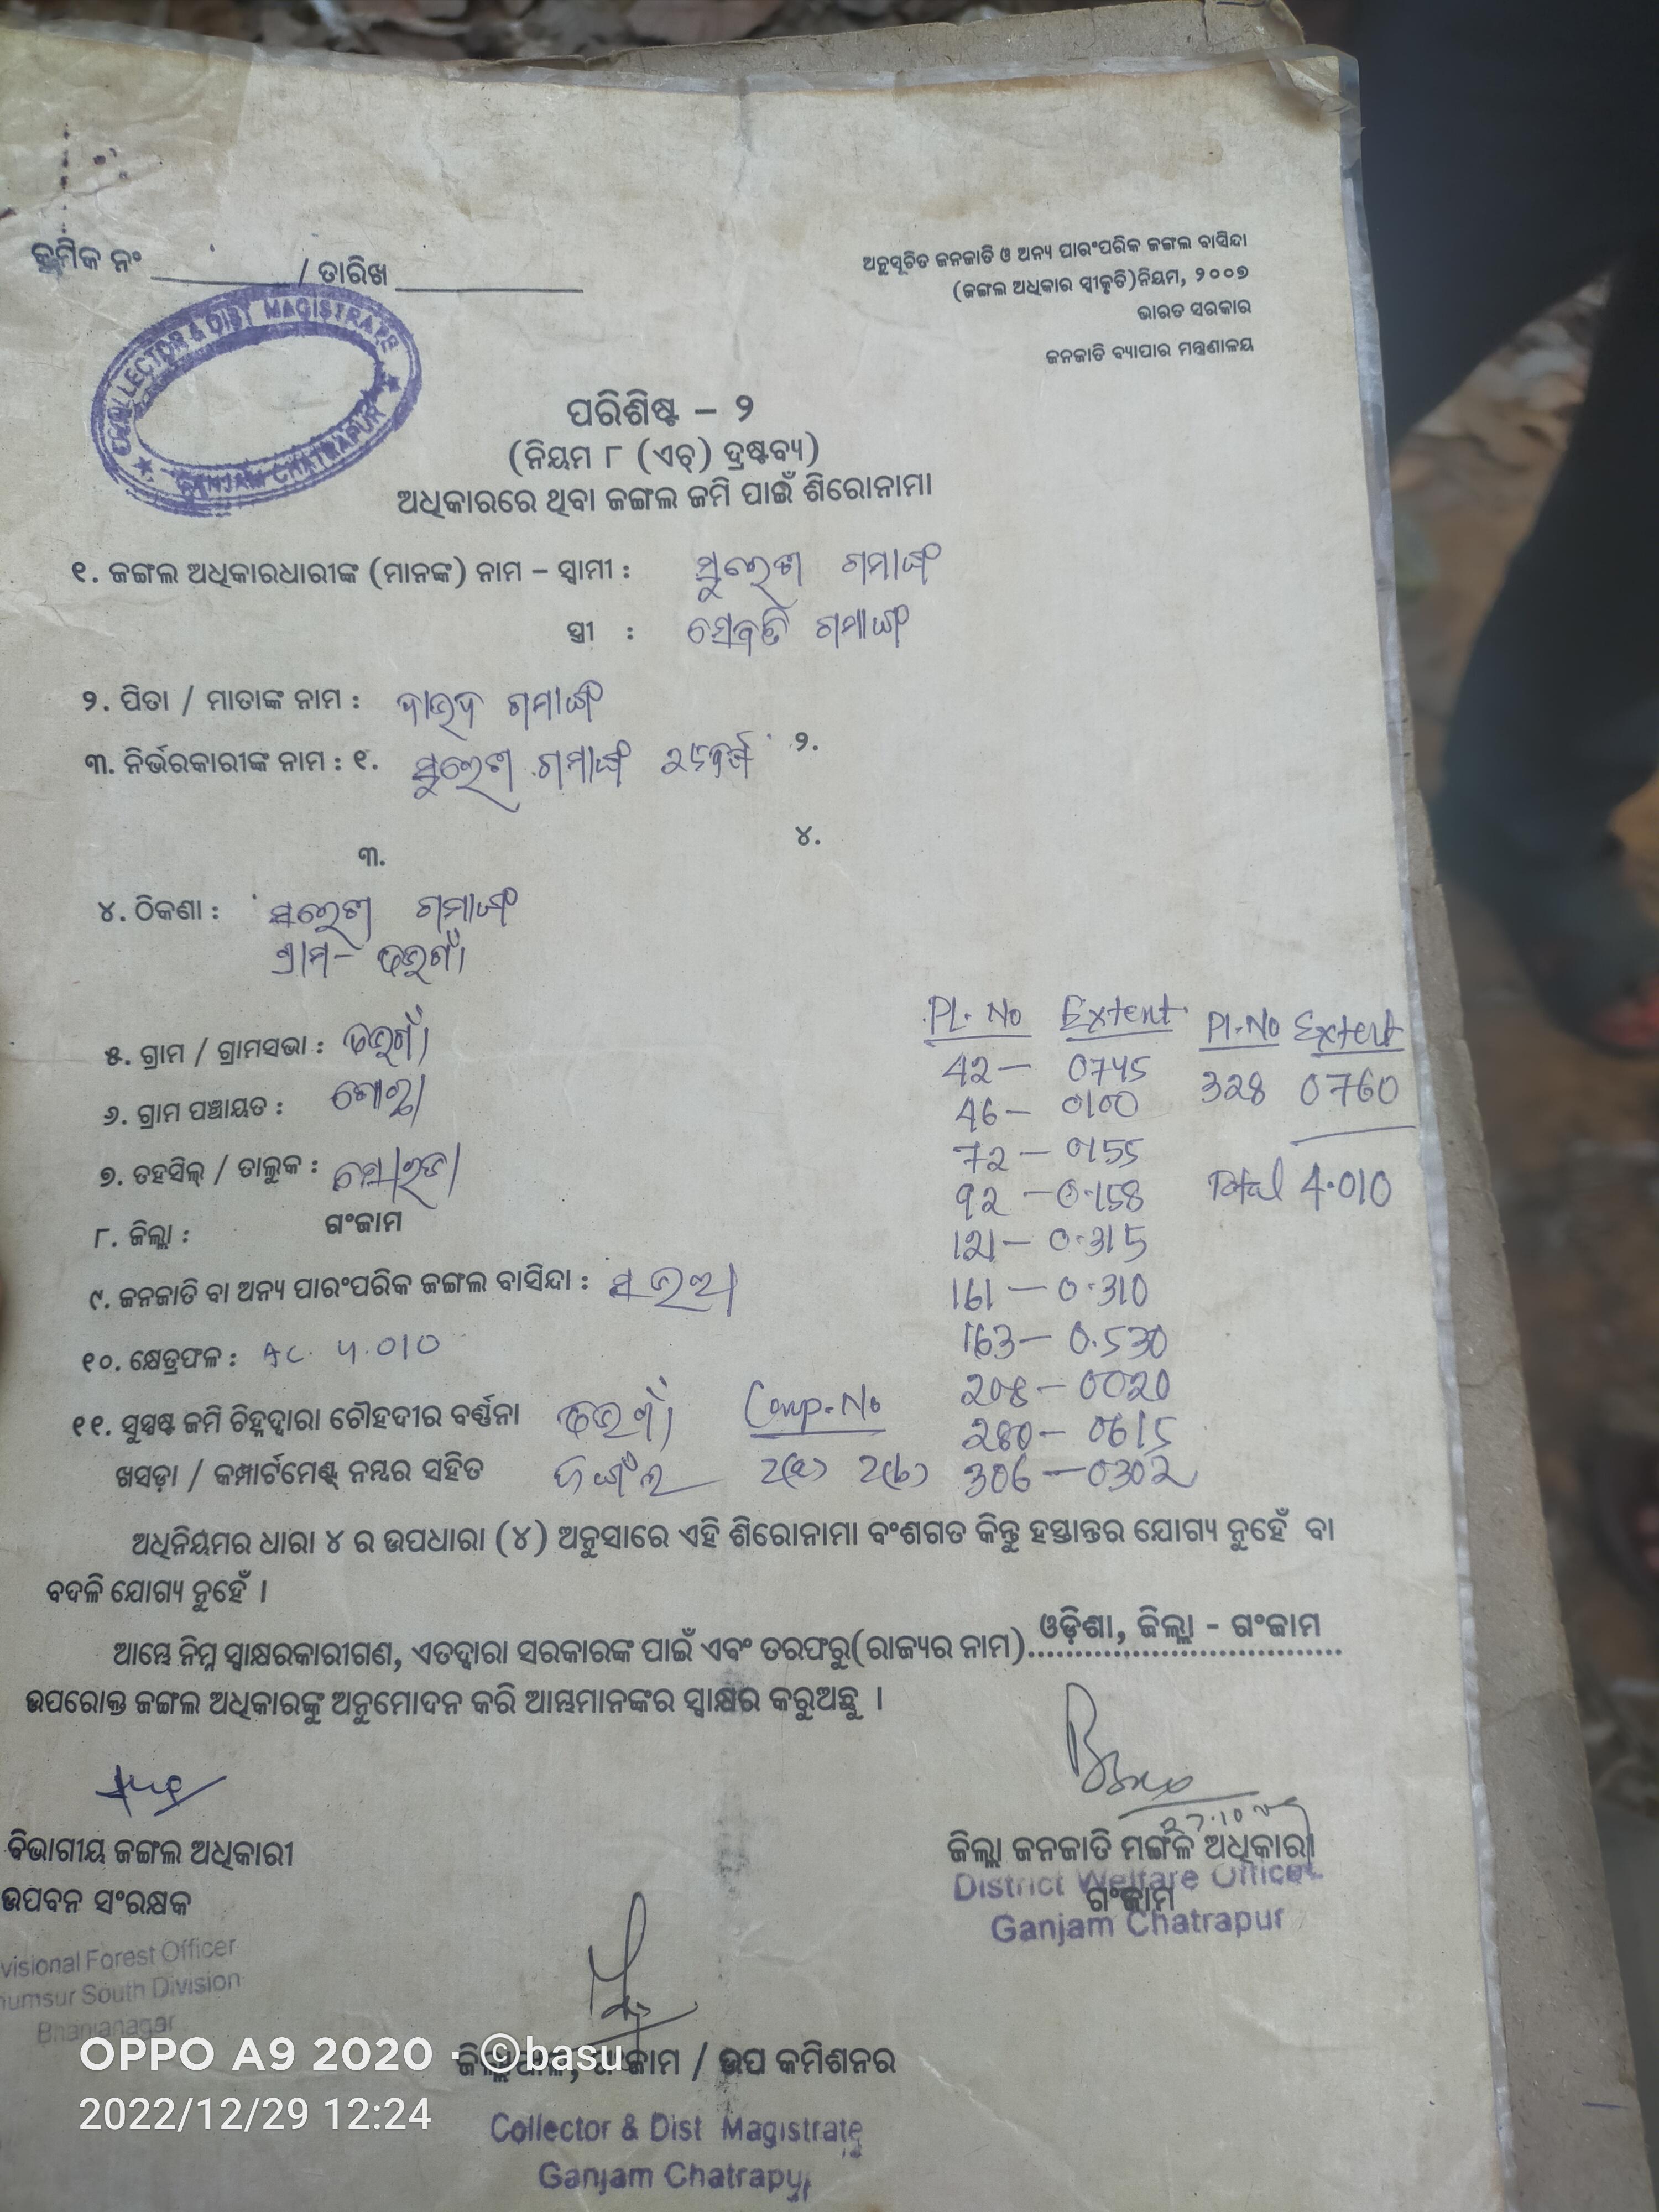 କ୍ରମିକ ନଂ ________ / ତାରିଖ ________
ଅନୁସୂଚିତ ଜନଜାତି ଓ ଅନ୍ୟ ପାରଂପରିକ ଜଙ୍ଗଲ ବାସିନ୍ଦା
(ଜଙ୍ଗଲ ଅଧିକାର ସ୍ୱୀକୃତି)ନିୟମ, ୨୦୦୭
ଭାରତ ସରକାର
ଜନଜାତି ବ୍ୟାପାର ମନ୍ତ୍ରଣାଳୟ
COLLECTOR & DIST MAGISTRATE
GANJAM CHATRAPUR
ପରିଶିଷ୍ଟ – ୨
(ନିୟମ ୮ (ଏଚ୍) ଦ୍ରଷ୍ଟବ୍ୟ)
ଅଧିକାରରେ ଥିବା ଜଙ୍ଗଲ ଜମି ପାଇଁ ଶିରୋନାମା
୧. ଜଙ୍ଗଲ ଅଧିକାରଧାରୀଙ୍କ (ମାନଙ୍କ) ନାମ – ସ୍ୱାମୀ : ଗମାଙ୍ଗ
ସ୍ତ୍ରୀ : ସେବତି ଗମାଙ୍ଗ
୨. ପିତା / ମାତାଙ୍କ ନାମ : ଗମାଙ୍ଗ
୩. ନିର୍ଭରକାରୀଙ୍କ ନାମ : ୧. ଗମାଙ୍ଗ ୨.
୩. ୪.
୪. ଠିକଣା : ଗମାଙ୍ଗ
ଗ୍ରାମ–
୫. ଗ୍ରାମ / ଗ୍ରାମସଭା :
୬. ଗ୍ରାମ ପଞ୍ଚାୟତ :
୭. ତହସିଲ୍ / ତାଲୁକ :
୮. ଜିଲ୍ଲା : ଗଂଜାମ
୯. ଜନଜାତି ବା ଅନ୍ୟ ପାରଂପରିକ ଜଙ୍ଗଲ ବାସିନ୍ଦା :
୧୦. କ୍ଷେତ୍ରଫଳ : Ac. 4.010
Pl. No Extent Pl. No Extent
42 — 0745 328 0760
46 — 0100
72 — 0155 Total 4.010
92 — 0.158
121 — 0.315
161 — 0.310
163 — 0.530
208 — 0020
280 — 0615
306 — 0302
୧୧. ସୁସ୍ପଷ୍ଟ ଜମି ଚିହ୍ନଦ୍ୱାରା ଚୌହଦୀର ବର୍ଣ୍ଣନା Comp. No
ଖସଡ଼ା / କମ୍ପାର୍ଟମେଣ୍ଟ୍ ନମ୍ବର ସହିତ 2(a) 2(b)
ଅଧିନିୟମର ଧାରା ୪ ର ଉପଧାରା (୪) ଅନୁସାରେ ଏହି ଶିରୋନାମା ବଂଶଗତ କିନ୍ତୁ ହସ୍ତାନ୍ତର ଯୋଗ୍ୟ ନୁହେଁ ବା
ବଦଳି ଯୋଗ୍ୟ ନୁହେଁ ।
ଆମ୍ଭେ ନିମ୍ନ ସ୍ୱାକ୍ଷରକାରୀଗଣ, ଏତଦ୍ୱାରା ସରକାରଙ୍କ ପାଇଁ ଏବଂ ତରଫରୁ(ରାଜ୍ୟର ନାମ)...ଓଡ଼ିଶା, ଜିଲ୍ଲା - ଗଂଜାମ
ଉପରୋକ୍ତ ଜଙ୍ଗଲ ଅଧିକାରଙ୍କୁ ଅନୁମୋଦନ କରି ଆମ୍ଭମାନଙ୍କର ସ୍ୱାକ୍ଷର କରୁଅଛୁ ।
ବିଭାଗୀୟ ଜଙ୍ଗଲ ଅଧିକାରୀ
ଉପବନ ସଂରକ୍ଷକ
visional Forest Officer
umsur South Division
Bhanjanagar
ଜିଲ୍ଲା ଜନଜାତି ମଙ୍ଗଳ ଅଧିକାରୀ
ଗଂଜାମ
District Welfare Officer
Ganjam Chatrapur
ଜିଲ୍ଲାପାଳ, ଗଂଜାମ / ଉପ କମିଶନର
Collector & Dist Magistrate
Ganjam Chatrapur
OPPO A9 2020 · ©basu
2022/12/29 12:24